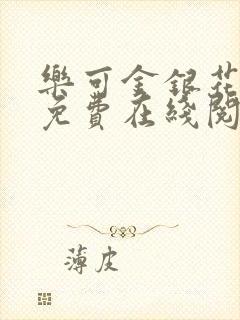 樂可金銀花
免費在綫閱
薄皮